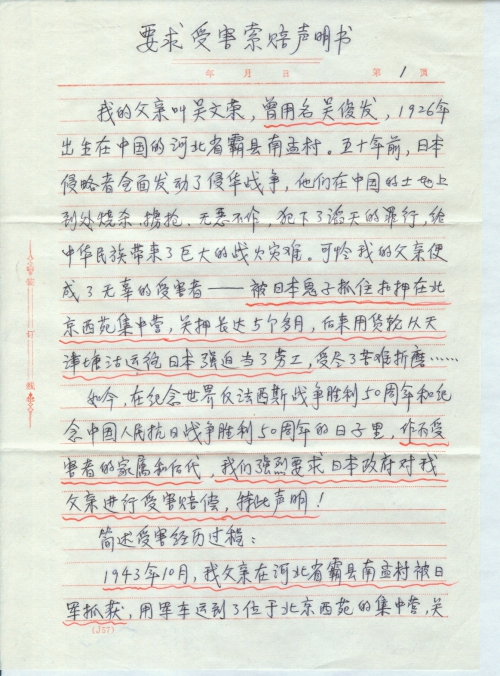 要求受害索赔声明书
年 月 日 第 1 页
我的父亲叫吴文荣，曾用名吴俊发，1926年
出生在中国的河北省霸县南孟村。五十年前，日本
侵略者全面发动了侵华战争，他们在中国的土地上
到处烧杀、掳抢、无恶不作，犯下了滔天的罪行，给
中华民族带来了巨大的战火灾难。可怜我的父亲便
成了无辜的受害者——被日本鬼子抓住扣押在北
京西苑集中营，关押长达5个多月，后来用货轮从天
津塘沽运往日本强迫当了劳工，受尽了苦难折磨……
如今，在纪念世界反法西斯战争胜利50周年和纪
念中国人民抗日战争胜利50周年的日子里，作为受
害者的家属和后代，我们强烈要求日本政府对我
父亲进行受害赔偿，特此声明！
简述受害经历过程：
1943年10月，我父亲在河北省霸县南孟村被日
军抓获，用军车运到了位于北京西苑的集中营，关